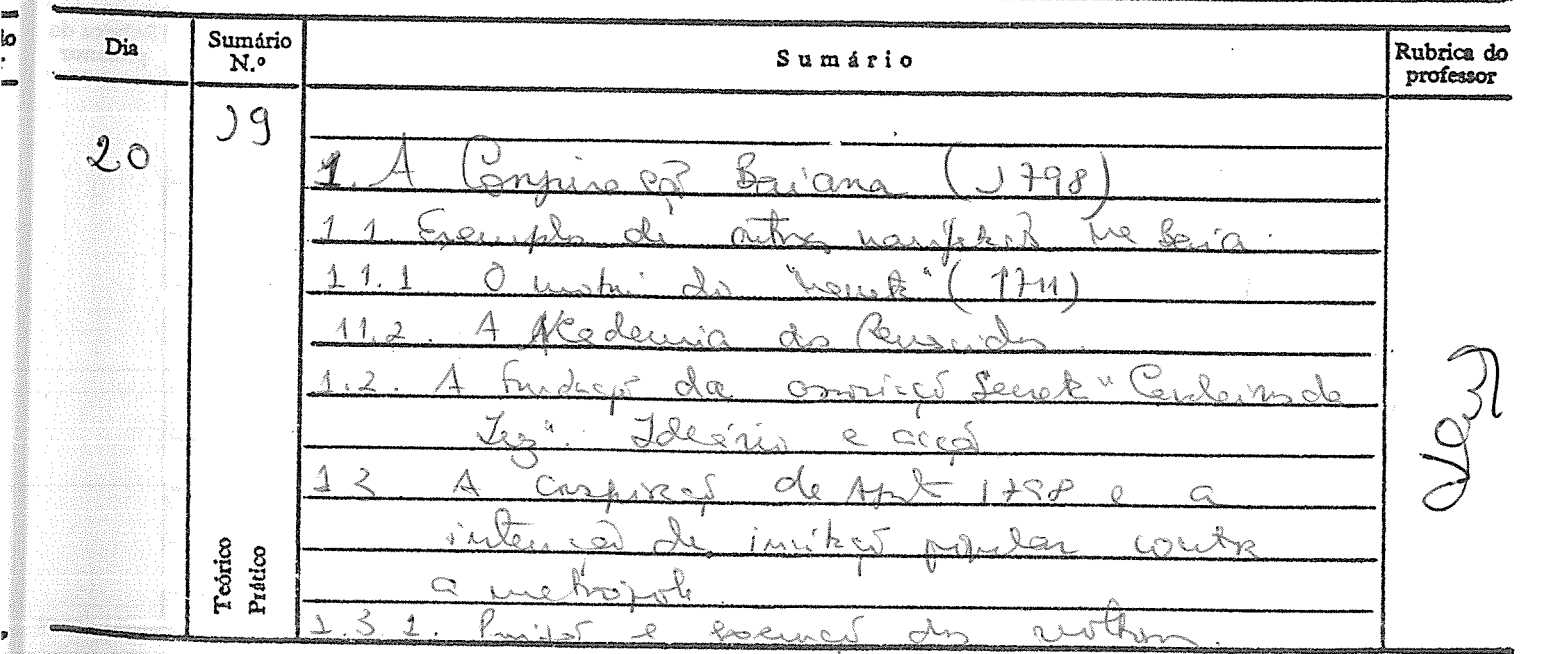 Dia
Sumário N.º
Sumário
Rubrica do professor
20
19
1. A Conspiração Baiana (1798)
1.1. Exemplo de outras na Baia.
1.1.1 O motim do "maneta" (1711)
1.1.2. A Academia dos Renascidos.
1.2. A fundação da associação secreta "Cavaleiros da
Luz". Ideário e acção
1.3 A conspiração de Agosto 1798 e a
intenção de incitação popular contra
a metrópole.
1.3.1. Prisão e execução dos revoltosos.
Teórico
Prático